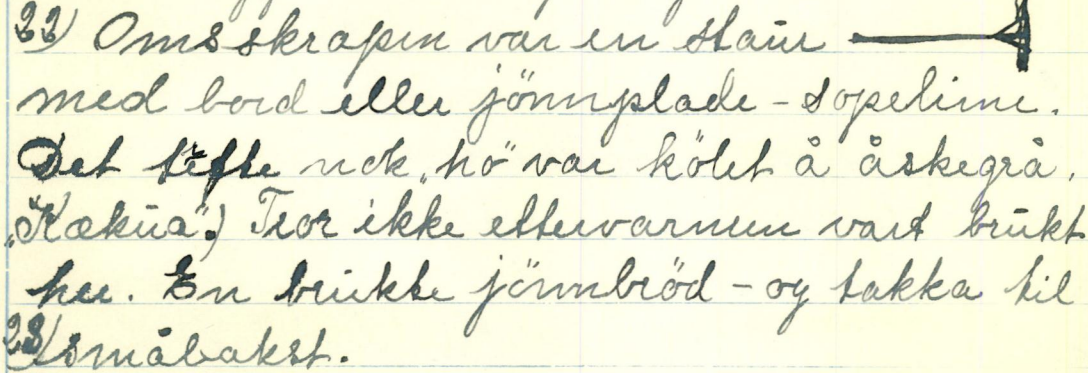 22) Omsskrapen var en staur
med bord eller jönnplade - sopelime.
Det tefte nok "hö" var kölet å åskegrå.
"Kækua".) Tror ikke ettervarmen vart brukt
her. En brukte jönnbröd - og takka til
23) småbakst.